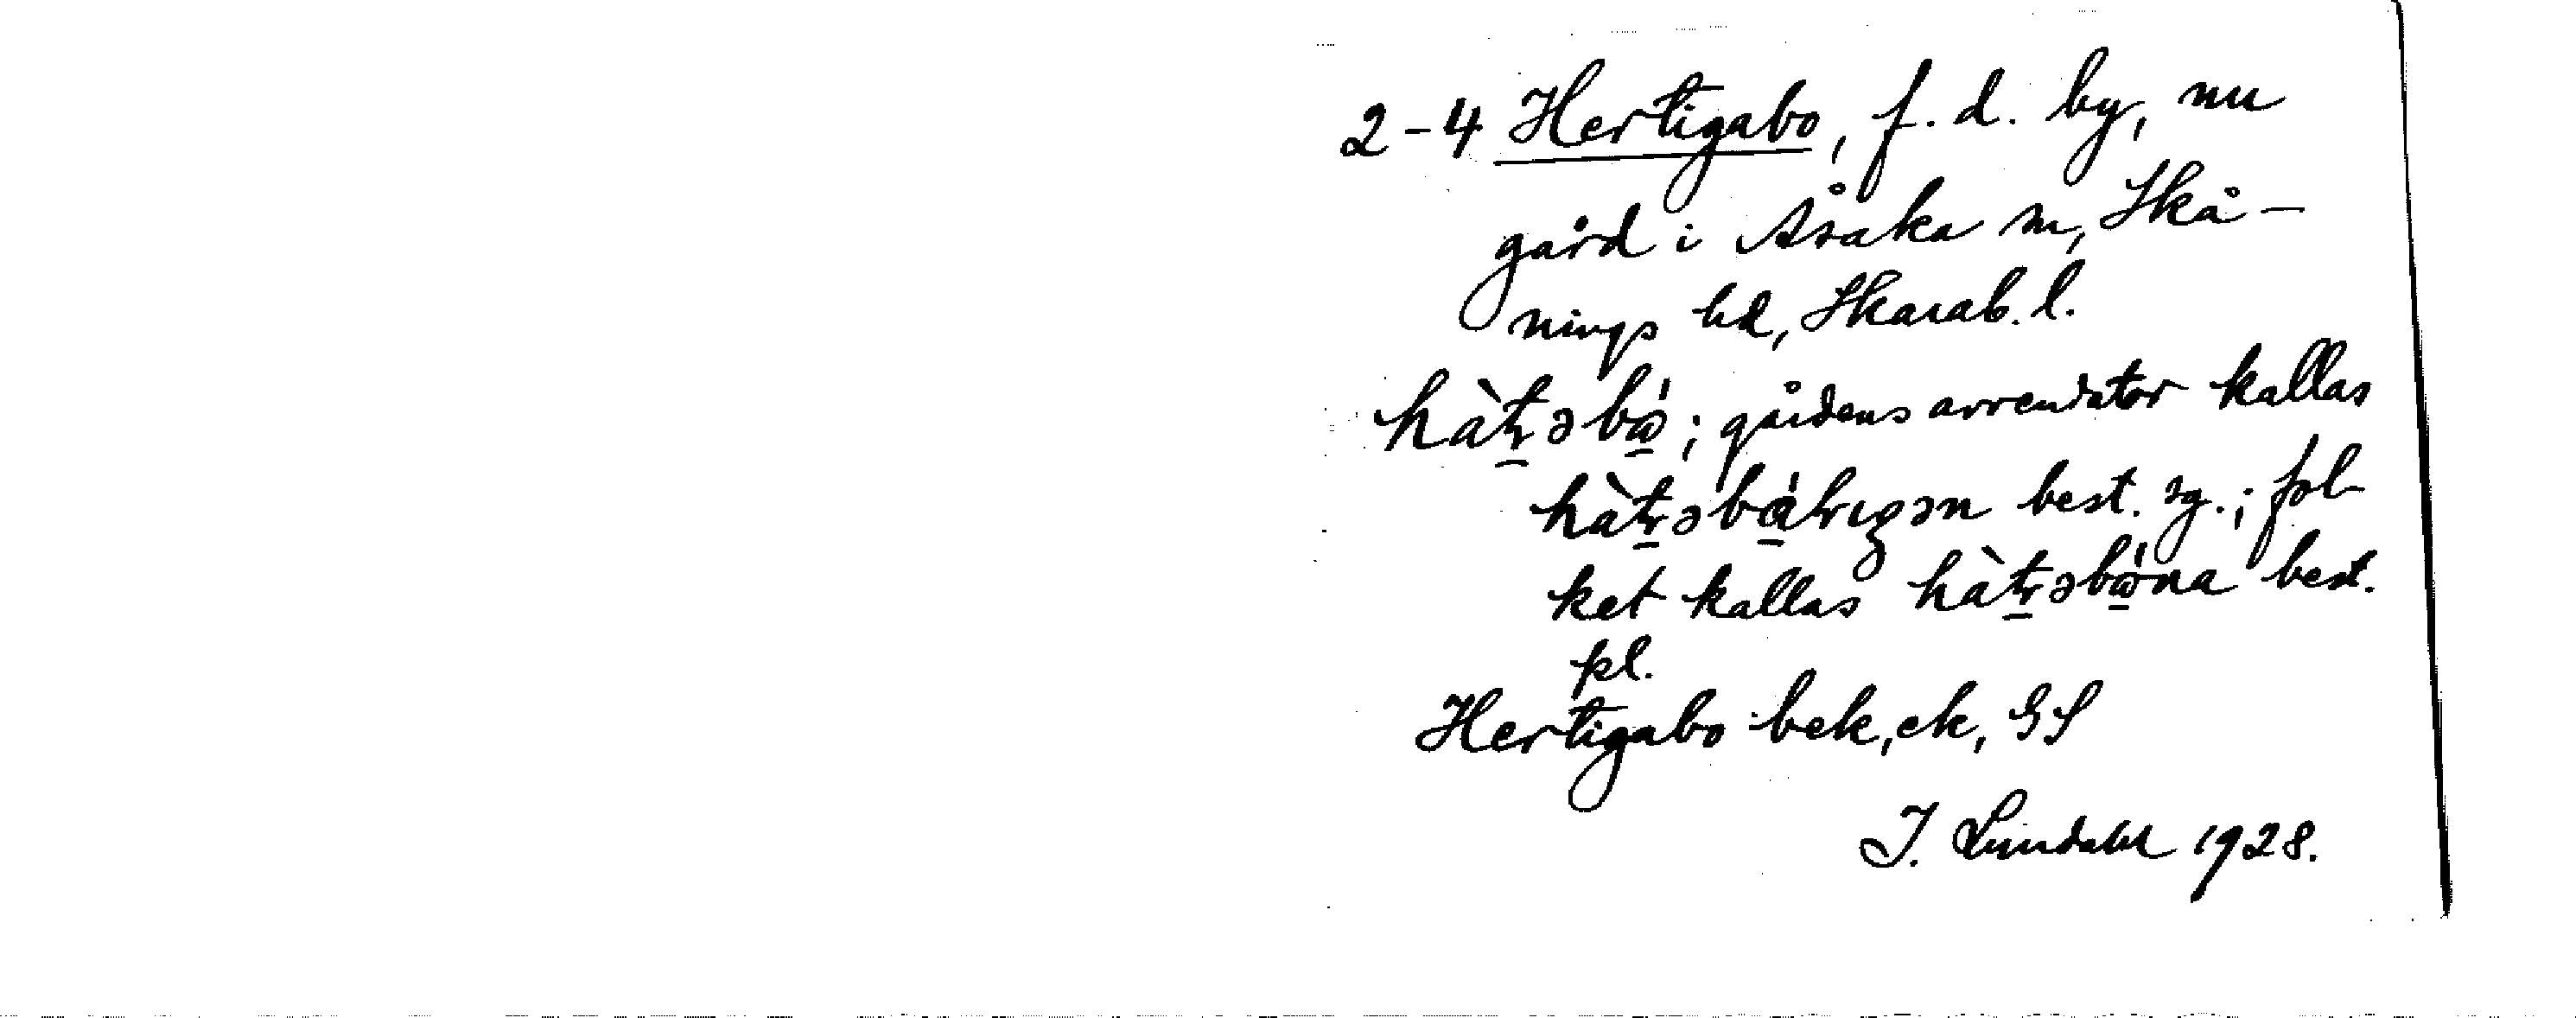 2-4 Hertigabo, f. d. by, nu
gård i Åsaka sn, Skå-
nings hd, Skarab. l.
gårdens arrendator kallas
best. sg.; fol-
ket kallas best.
pl.
Hertigabo bek, ek, GS
I. Lundahl 1928.